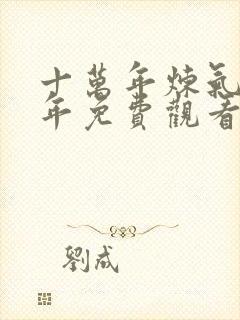 十萬年煉氣
年免費觀看
劉成